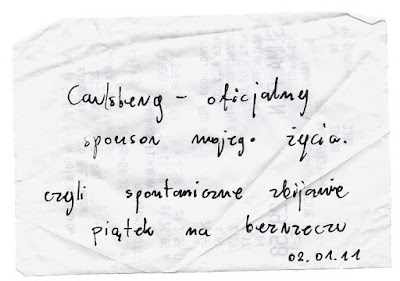 Carlsberg - oficjalny
sponsor mojego życia.
czyli spontaniczne zbijanie
piątek na bezrzeczu
02.01.11